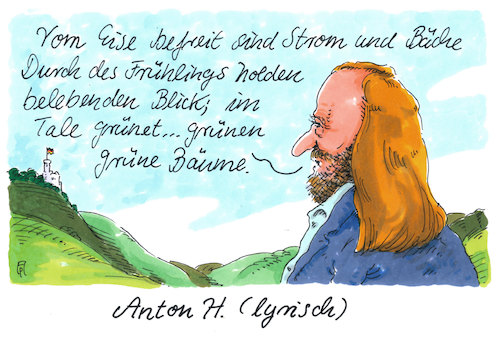 Vom Eise befreit sind Strom und Bäche
Durch des Frühlings holden
belebenden Blick; im
Tale grünet... grünen
grüne Bäume.
Anton H. (lyrisch)